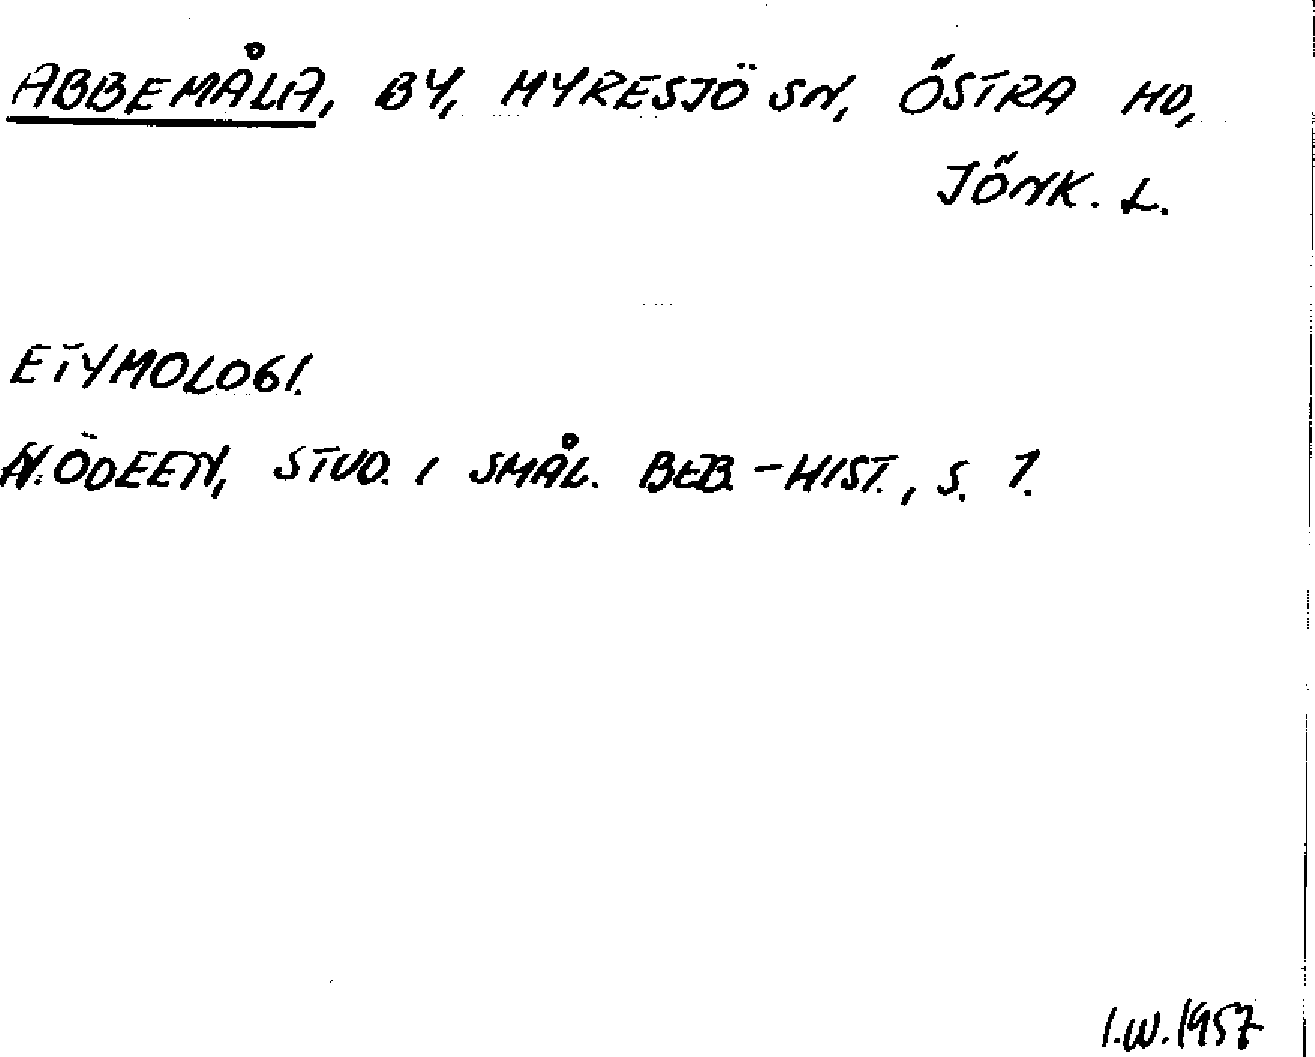 ABBEMÅLA, BY, MYRESJÖ SN, ÖSTRA HD,
JÖNK. L.
ETYMOLOGI.
N. ÖDEEN, STUD. I SMÅL. BEB.-HIST., S. 7.
I.W. 1957